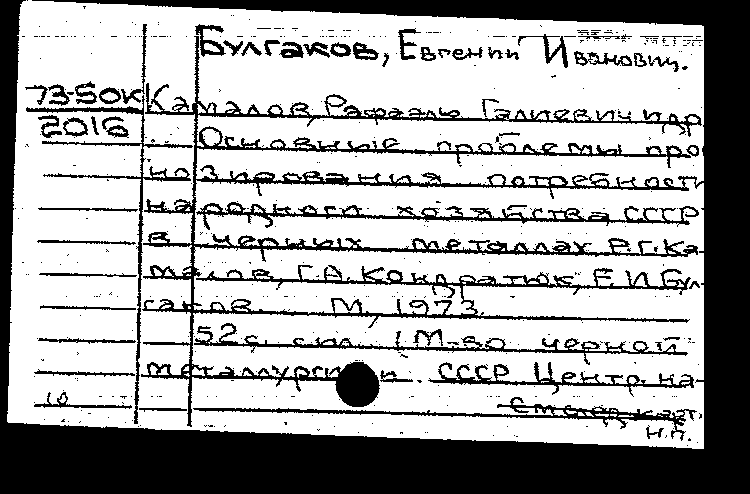 Булгаков, Евгений Иванович.
73-50к Камалов, Рафаэль Галиевич и др
2016 Основные проблемы прог
нозирования потребности
народного хозяйства СССР
в черных металлах Р.Г. Ка-
малов, Г.А. Кондратюк, Е.И Бул-
гаков. М., 1973.
52 с. с ил. (М-во черной
металлургии СССР Центр. на-
10 См. след. карт.
Н.П.